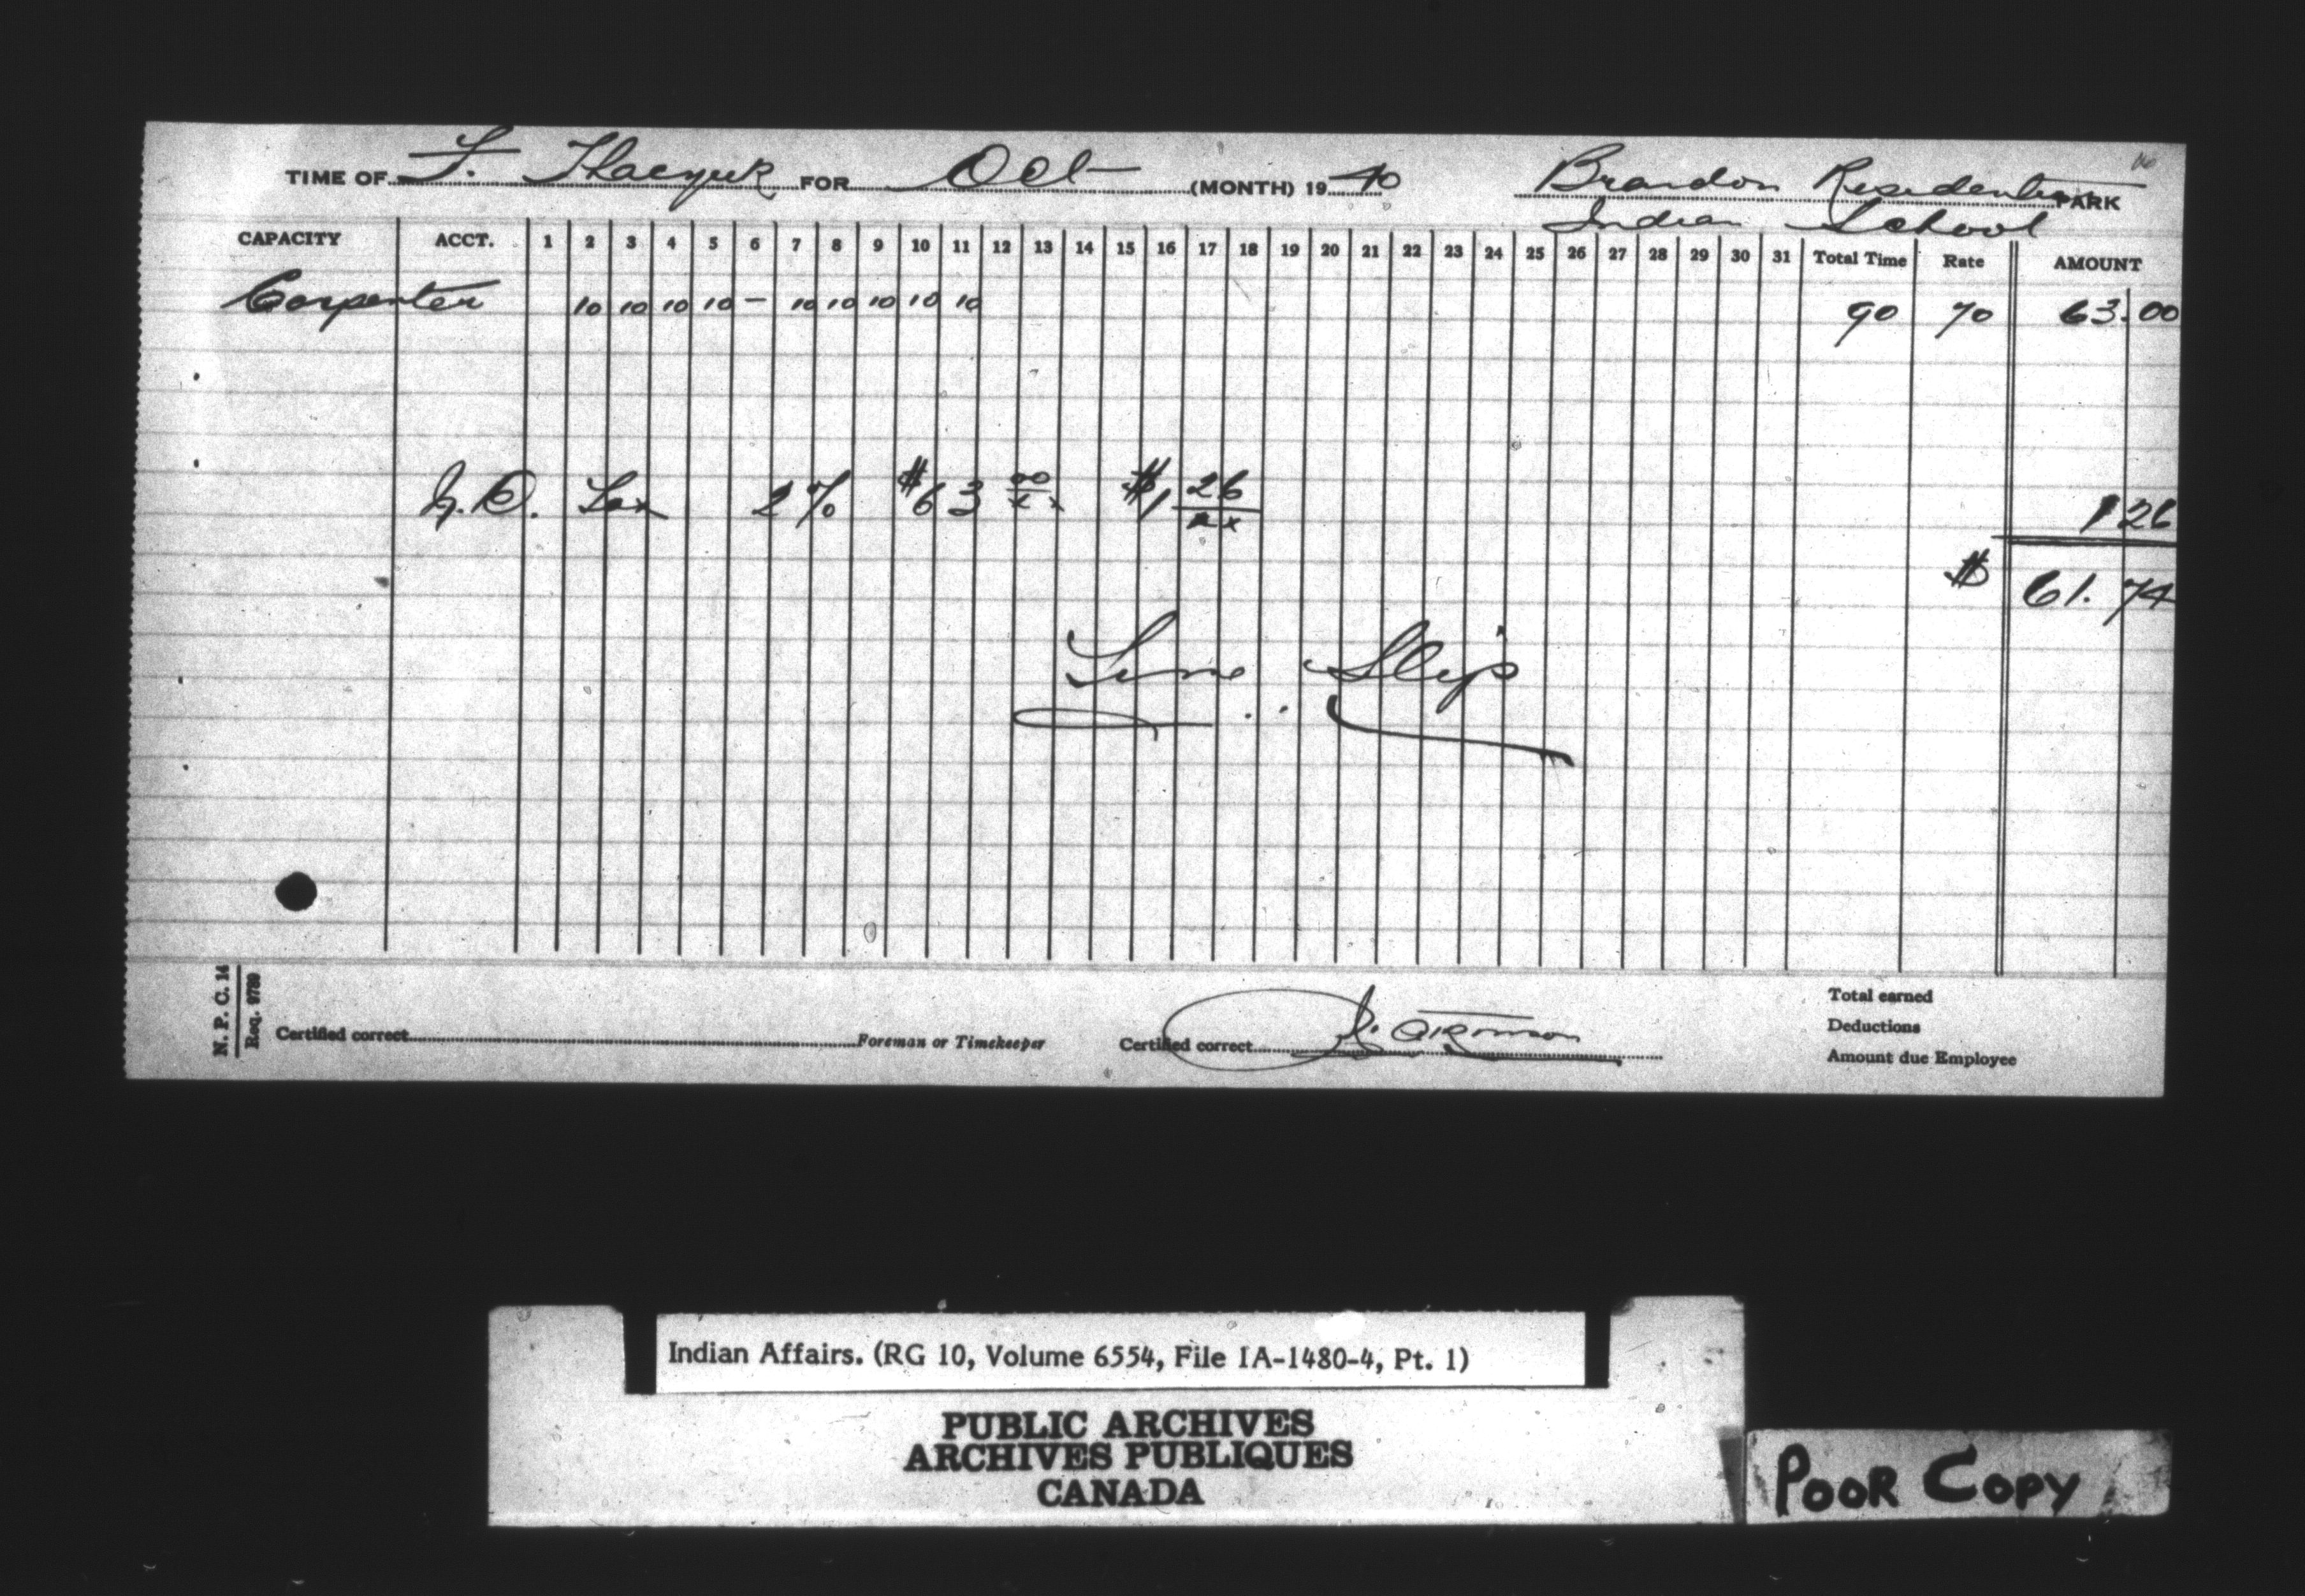 TIME OF F. FOR Oct (MONTH) 19 40 Brandon Residential PARK
Indian School
CAPACITY ACCT. 1 2 3 4 5 6 7 8 9 10 11 12 13 14 15 16 17 18 19 20 21 22 23 24 25 26 27 28 29 30 31 Total Time Rate AMOUNT
Carpenter 10 10 10 10 — 10 10 10 10 10 90 70 63.00
N.D. Tax 2% $63 00/xx $1 26/xx 1 26
$ 61.74
Time Slip
N. P. C. 14
Req. 9789
Total earned
Certified correct Foreman or Timekeeper Certified correct Deductions
Amount due Employee
Indian Affairs. (RG 10, Volume 6554, File IA-1480-4, Pt. 1)
PUBLIC ARCHIVES
ARCHIVES PUBLIQUES
CANADA
POOR COPY